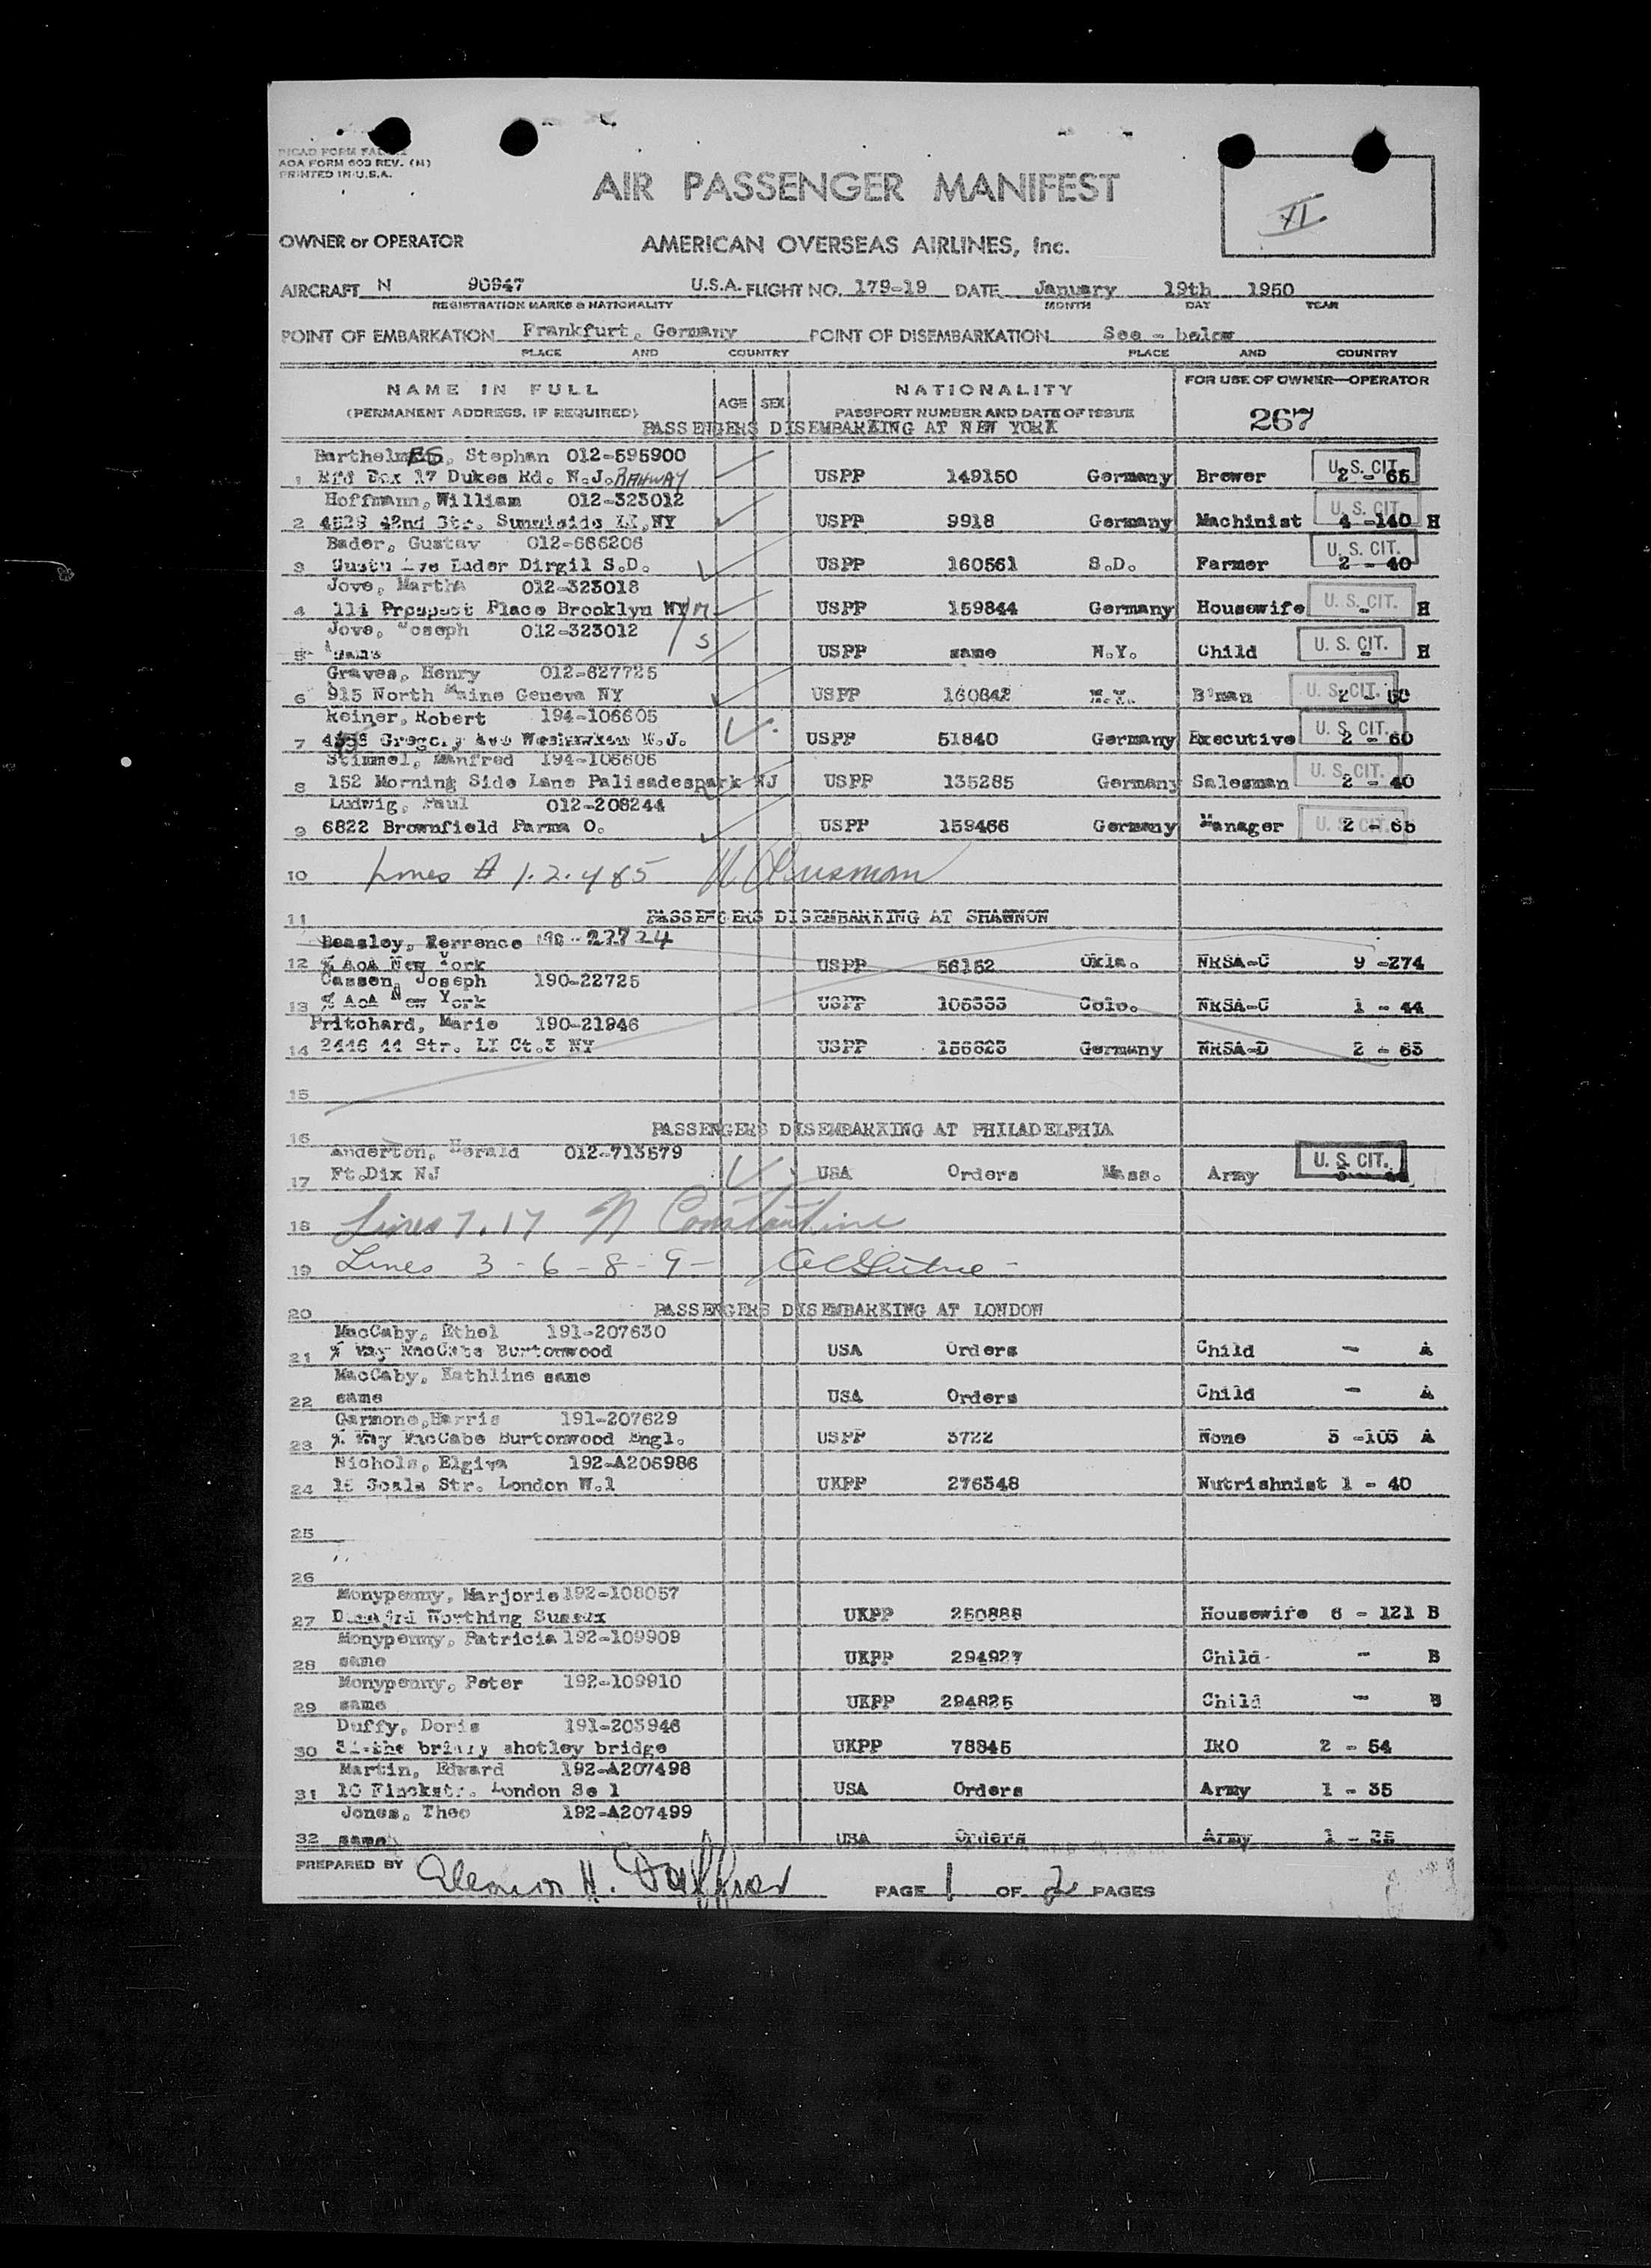 AOA FORM 603 REV. (M)
PRINTED IN U.S.A.
AIR PASSENGER MANIFEST
VI
OWNER or OPERATOR AMERICAN OVERSEAS AIRLINES, Inc.
AIRCRAFT N 90947 U.S.A. FLIGHT NO. 179-19 DATE January 19th 1950
REGISTRATION MARKS & NATIONALITY MONTH DAY YEAR
POINT OF EMBARKATION Frankfurt, Germany POINT OF DISEMBARKATION See - below
PLACE AND COUNTRY PLACE AND COUNTRY
NAME IN FULL AGE SEX NATIONALITY FOR USE OF OWNER—OPERATOR
(PERMANENT ADDRESS, IF REQUIRED) PASSPORT NUMBER AND DATE OF ISSUE 267
PASSENGERS DISEMBARKING AT NEW YORK
Barthelmes, Stephan 012-595900
1 Rfd Box 17 Dukes Rd. N.J. RAHWAY USPP 149150 Germany Brewer U.S. CIT. 2 - 65
Hoffmann, William 012-323012
2 4528 42nd Str. Sunniside LI, NY USPP 9918 Germany Machinist U.S. CIT. 4 -140 H
Bader, Gustav 012-666206
3 Dirgil S.D. USPP 160561 S.D. Farmer U.S. CIT. 2 - 40
Jove, Martha 012-323018
4 111 Prospect Place Brooklyn NY M USPP 159844 Germany Housewife U.S. CIT. - H
Jove, Joseph 012-323012
5 same S USPP same N.Y. Child U.S. CIT. - H
Graves, Henry 012-627725
6 915 North Maine Geneva NY USPP 160642 N.Y. B'man U.S. CIT. 2 - 60
Reiner, Robert 194-106605
7 Gregory Ave Weehawken N.J. USPP 51840 Germany Executive U.S. CIT. 2 - 60
Stimmel, Manfred 194-106606
8 152 Morning Side Lane Palisadespark NJ USPP 135285 Germany Salesman U.S. CIT. 2 - 40
Ludwig, Paul 012-208244
9 6822 Brownfield Parma O. USPP 159466 Germany Manager U.S. CIT. 2 - 65
10 Lines # 1.2.4 & 5
11 PASSENGERS DISEMBARKING AT SHANNON
Beasley, Rerrence 190-22724
12 % AoA New York USPP 56152 Okla. NRSA-C 9 -274
Cassen, Joseph 190-22725
13 % AoA New York USPP 106333 Colo. NRSA-C 1 - 44
Pritchard, Marie 190-21946
14 2446 44 Str. LI Ct.3 NY USPP 156623 Germany NRSA-D 2 - 63
15
16 PASSENGERS DISEMBARKING AT PHILADELPHIA
Anderton, Herald 012-713579
17 Ft.Dix NJ USA Orders Mass. Army U.S. CIT.
18 Lines 7, 17 N Constantine
19 Lines 3 - 6 - 8 - 9 -
20 PASSENGERS DISEMBARKING AT LONDON
MacCaby, Ethel 191-207630
21 % May MacCabe Burtonwood USA Orders Child - A
MacCaby, Kathline same
22 same USA Orders Child - A
Garmone, Harris 191-207629
23 % May MacCabe Burtonwood Engl. USPP 3722 None 5 -103 A
Nichols, Elgiva 192-A206986
24 Str. London W.1 UKPP 276348 Nutrishnist 1 - 40
25
26
Monypenny, Marjorie 192-108057
27 Worthing Sussex UKPP 250888 Housewife 6 - 121 B
Monypenny, Patricia 192-109909
28 same UKPP 294927 Child - B
Monypenny, Peter 192-109910
29 same UKPP 294825 Child - B
Duffy, Doris 191-203946
30 shotley bridge UKPP 78845 IRO 2 - 54
Martin, Edward 192-A207498
31 London Se 1 USA Orders Army 1 - 35
Jones, Theo 192-A207499
32 same USA Orders Army 1 - 25
PREPARED BY Eleanor H. PAGE 1 OF 2 PAGES